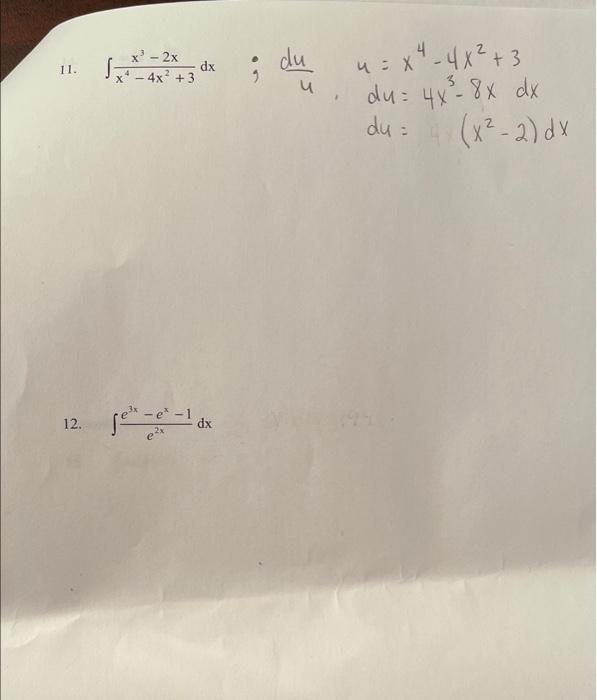 11. ∫ (x³ − 2x)/(x⁴ − 4x² + 3) dx ; du/u , u = x⁴ - 4x² + 3
du = 4x³ - 8x dx
du = (x² - 2) dx
12. ∫ (e³ˣ − eˣ − 1)/e²ˣ dx